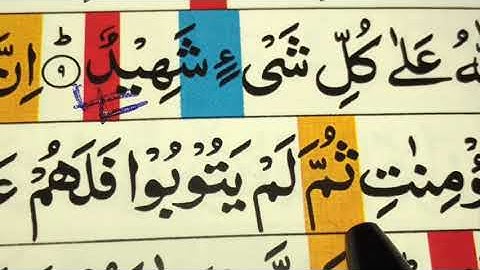 للهُ عَلٰى كُلِّ شَیْءٍ شَهِیْدٌ ؕ﴿۹﴾ اِنَّ
ؤْمِنٰتِ ثُمَّ لَمْ یَتُوْبُوْا فَلَهُمْ عَ